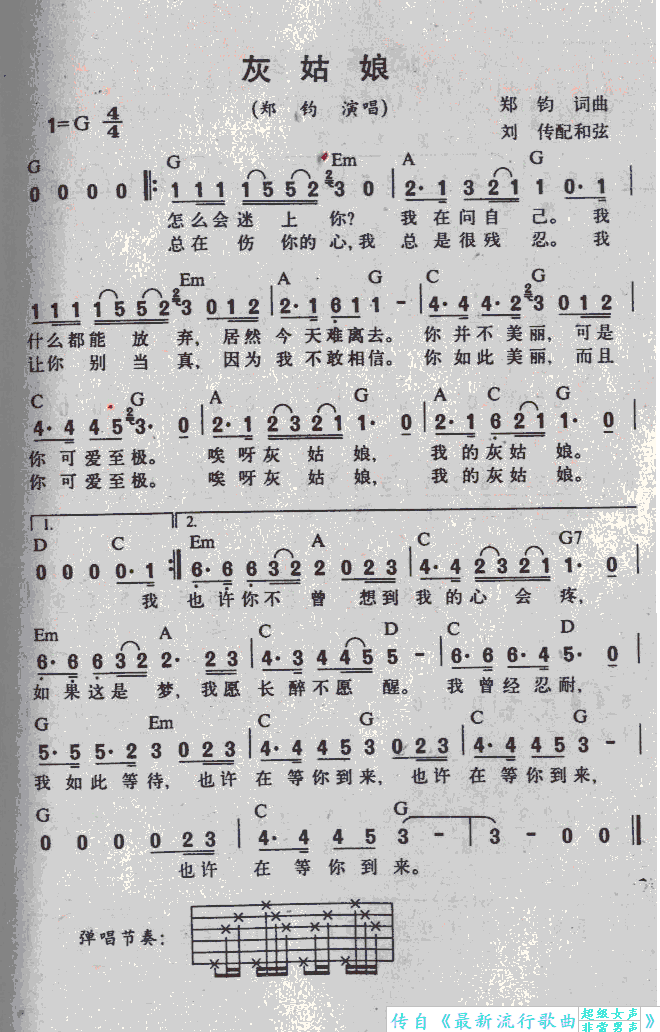 灰姑娘
(郑钧 演唱)
1=G 4/4
郑钧 词曲
刘传配和弦
G G Em A G
0 0 0 0 ‖: 1 1 1 1 5 5 2 3 0 | 2· 1 3 2 1 1 0· 1
怎么会迷上你? 我在问自己。我
总在伤你的心,我总是很残忍。我
Em A G C G
1 1 1 1 5 5 2 3 0 1 2 | 2· 1 6 1 1 - | 4· 4 4· 2 3 0 1 2
什么都能放弃, 居然今天难离去。你并不美丽, 可是
让你别当真, 因为我不敢相信。你如此美丽, 而且
C G A G A C G
4· 4 4 5 3· 0 | 2· 1 2 3 2 1 1· 0 | 2· 1 6 2 1 1· 0
你可爱至极。 唉呀灰姑娘, 我的灰姑娘。
你可爱至极。 唉呀灰姑娘, 我的灰姑娘。
1. 2.
D C Em A C G7
0 0 0 0· 1 :‖ 6· 6 6 3 2 2 0 2 3 | 4· 4 2 3 2 1 1· 0
我 也许你不曾想到我的心会疼,
Em A C D C D
6· 6 6 3 2 2· 2 3 | 4· 3 4 4 5 5 - | 6· 6 6· 4 5· 0
如果这是梦, 我愿长醉不愿醒。 我曾经忍耐,
G Em C G C G
5· 5 5· 2 3 0 2 3 | 4· 4 4 5 3 0 2 3 | 4· 4 4 5 3 -
我如此等待, 也许在等你到来, 也许在等你到来,
G C G
0 0 0 0 2 3 | 4· 4 4 5 3 - | 3 - 0 0 ‖
也许在等你到来。
弹唱节奏:
传自《最新流行歌曲 超级女声 非常男声》